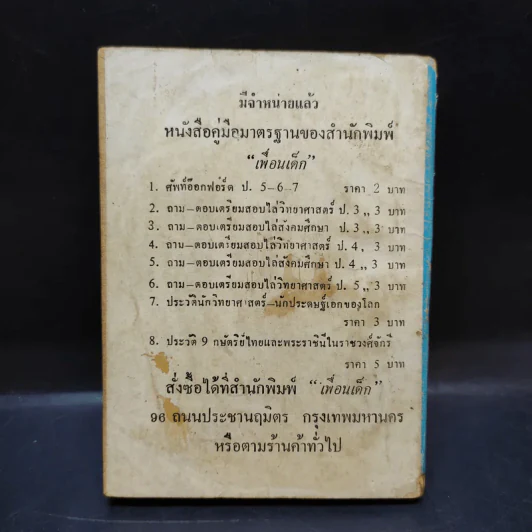 มีจำหน่ายแล้ว
หนังสือคู่มือมาตรฐานของสำนักพิมพ์
“เพื่อนเด็ก”
1. ศัพท์อ๊อกฟอร์ด ป. 5–6–7 ราคา 2 บาท
2. ถาม–ตอบเตรียมสอบไล่วิทยาศาสตร์ ป. 3 ,, 3 บาท
3. ถาม–ตอบเตรียมสอบไล่สังคมศึกษา ป. 3 ,, 3 บาท
4. ถาม–ตอบเตรียมสอบไล่วิทยาศาสตร์ ป. 4 , 3 บาท
5. ถาม–ตอบเตรียมสอบไล่สังคมศึกษา ป. 4 ,, 3 บาท
6. ถาม–ตอบเตรียมสอบไล่วิทยาศาสตร์ ป. 5 ,, 3 บาท
7. ประวัตินักวิทยาศาสตร์–นักประดิษฐ์เอกของโลก
ราคา 3 บาท
8. ประวัติ 9 กษัตริย์ไทยและพระราชินีในราชวงศ์จักรี
ราคา 5 บาท
สั่งซื้อได้ที่สำนักพิมพ์ “เพื่อนเด็ก”
96 ถนนประชานฤมิตร กรุงเทพมหานคร
หรือตามร้านค้าทั่วไป